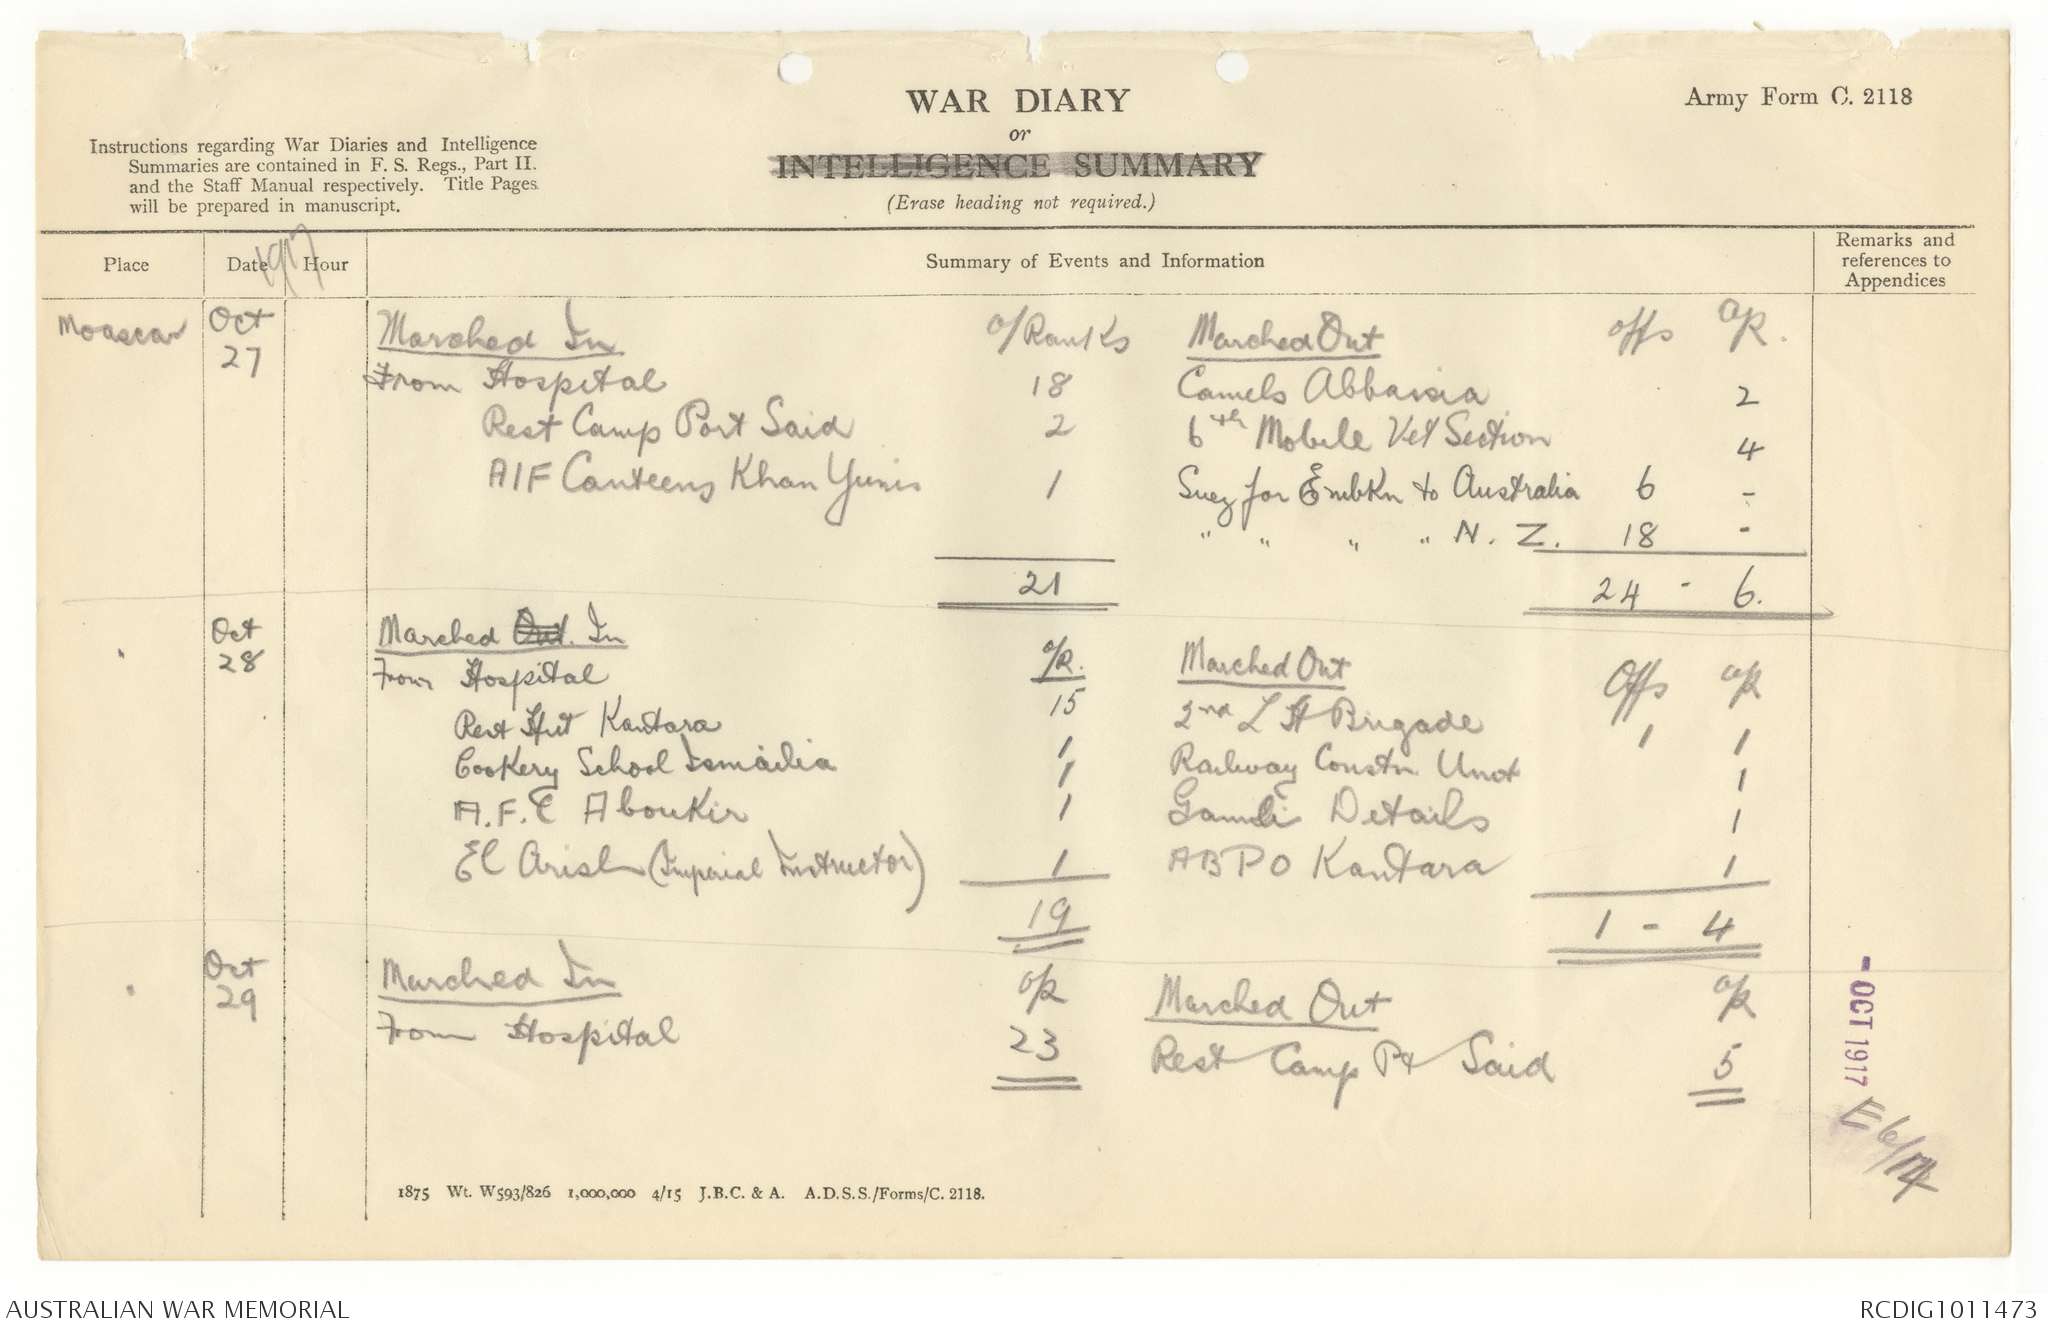 WAR DIARY
or
INTELLIGENCE SUMMARY
(Erase heading not required.)
Army Form C. 2118
Instructions regarding War Diaries and Intelligence
Summaries are contained in F. S. Regs., Part II.
and the Staff Manual respectively. Title Pages
will be prepared in manuscript.
Place Date Hour Summary of Events and Information Remarks and references to Appendices
1917
Moascar Oct 27 Marched In o/Ranks Marched Out offs o/R.
From Hospital 18 Camels Abbassia 2
Rest Camp Port Said 2 6th Mobile Vet Section 4
AIF Canteens Khan Yunis 1 Suez for Embkn to Australia 6 -
" " " " N. Z. 18 -
21 24 - 6.
" Oct 28 Marched Out. In o/R. Marched Out Offs o/R
From Hospital 15 2nd L H Brigade 1 1
Rest Hut Kantara 1 Railway Constn Unit 1
Cookery School Ismailia 1 Details 1
A.F.C Aboukir 1 ABPO Kantara 1
El Arish (Imperial Instructor) 1
19 1 - 4
" Oct 29 Marched In o/R Marched Out o/R
From Hospital 23 Rest Camp Pt Said 5
- OCT 1917
E 6/14
1875 Wt. W593/826 1,000,000 4/15 J.B.C. & A. A.D.S.S./Forms/C. 2118.
AUSTRALIAN WAR MEMORIAL
RCDIG1011473